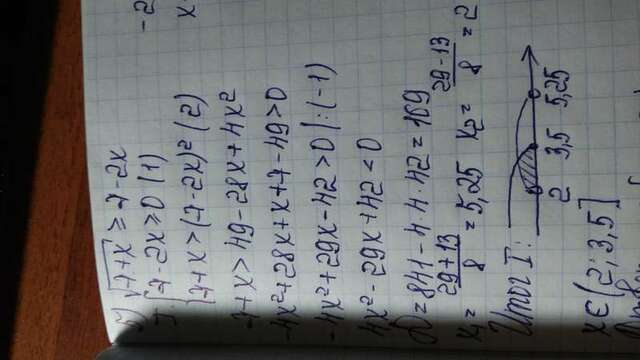 √7+x > 7-2x
7-2x≥0 (1)
7+x>(7-2x)² (2)
7+x>49-28x+4x²
-4x²+28x+x+7-49>0
-4x²+29x-42>0 |:(-1)
4x²-29x+42<0
D=841-4·4·42=169
x₁=(29+13)/8=5,25 x₂=(29-13)/8=2
Итог I:
2 3,5 5,25
x∈(2;3,5]
-2
x